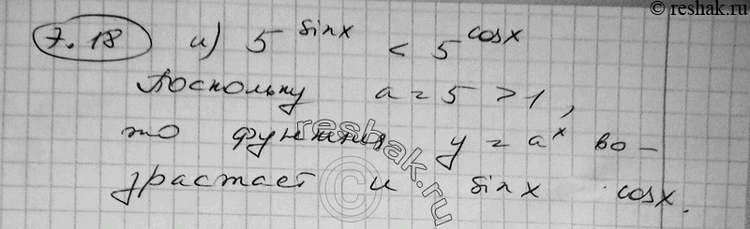 © reshak.ru
7.18 и) 5^sinx < 5^cosx
Поскольку a = 5 > 1,
то функция y = a^x во-
зрастает и sinx cosx.
reshak.ru
©